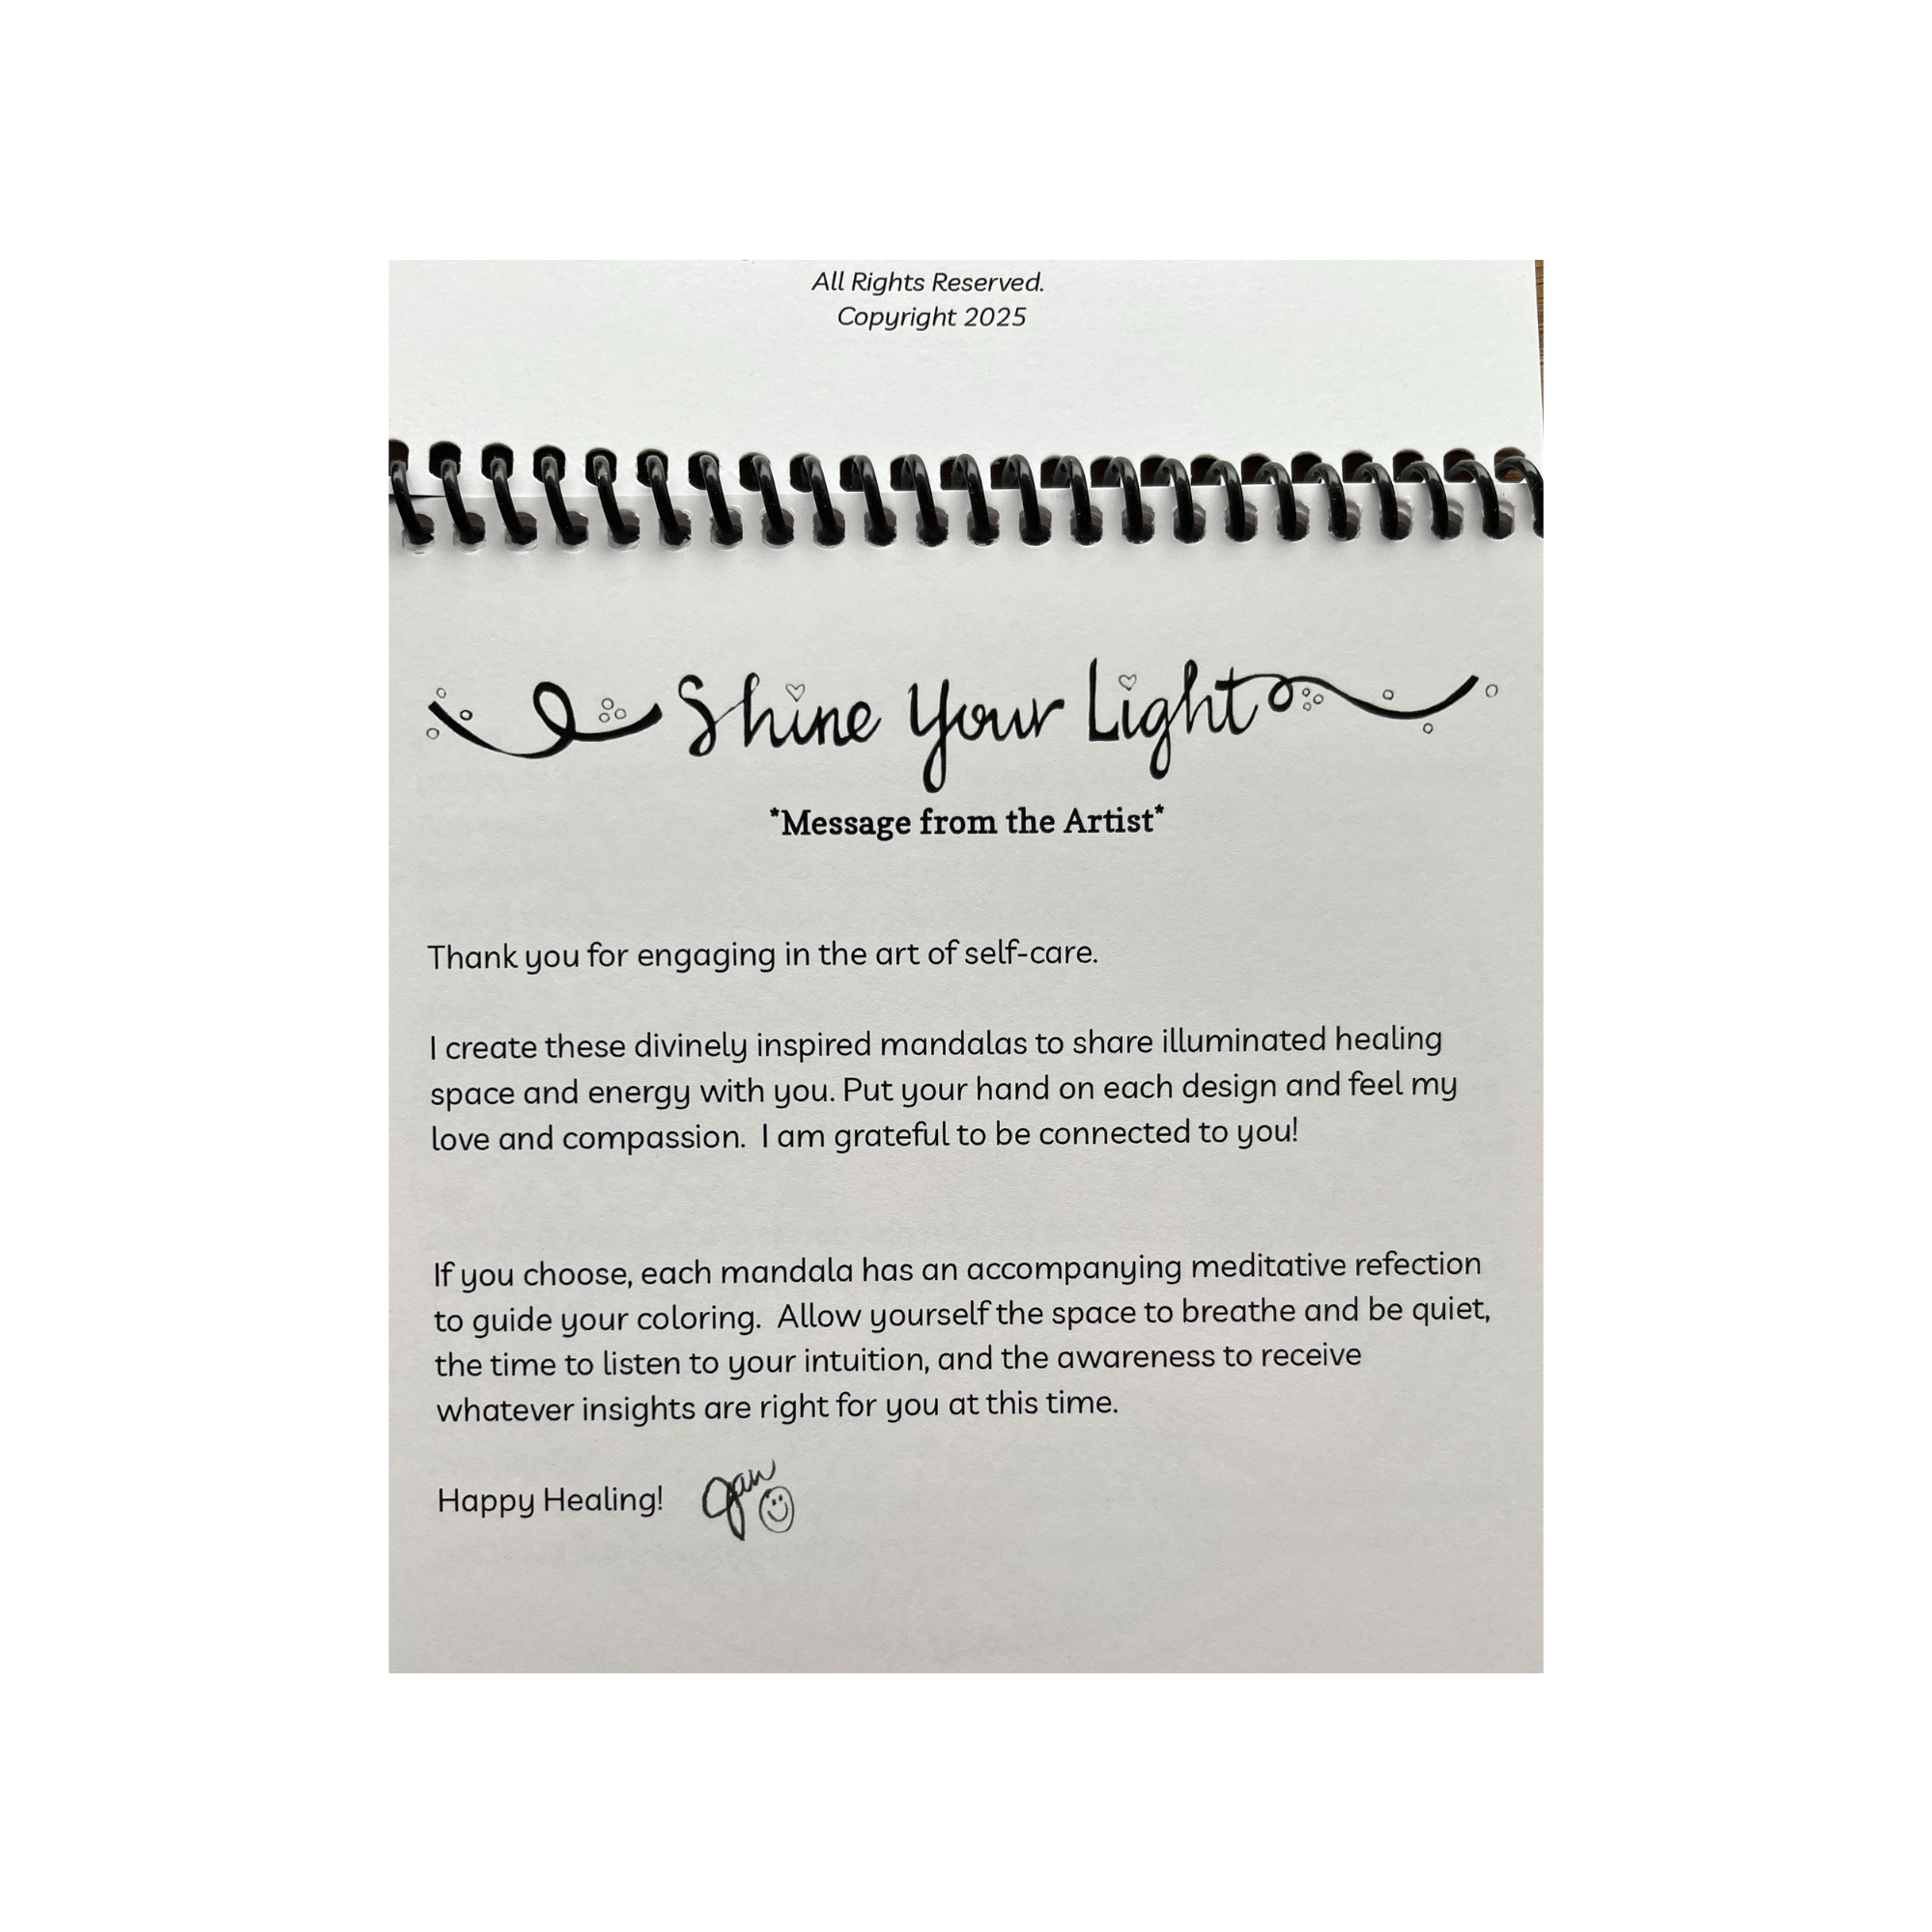 All Rights Reserved.
Copyright 2025
Shine Your Light
*Message from the Artist*
Thank you for engaging in the art of self-care.
I create these divinely inspired mandalas to share illuminated healing
space and energy with you. Put your hand on each design and feel my
love and compassion.  I am grateful to be connected to you!
If you choose, each mandala has an accompanying meditative refection
to guide your coloring.  Allow yourself the space to breathe and be quiet,
the time to listen to your intuition, and the awareness to receive
whatever insights are right for you at this time.
Happy Healing! Jan